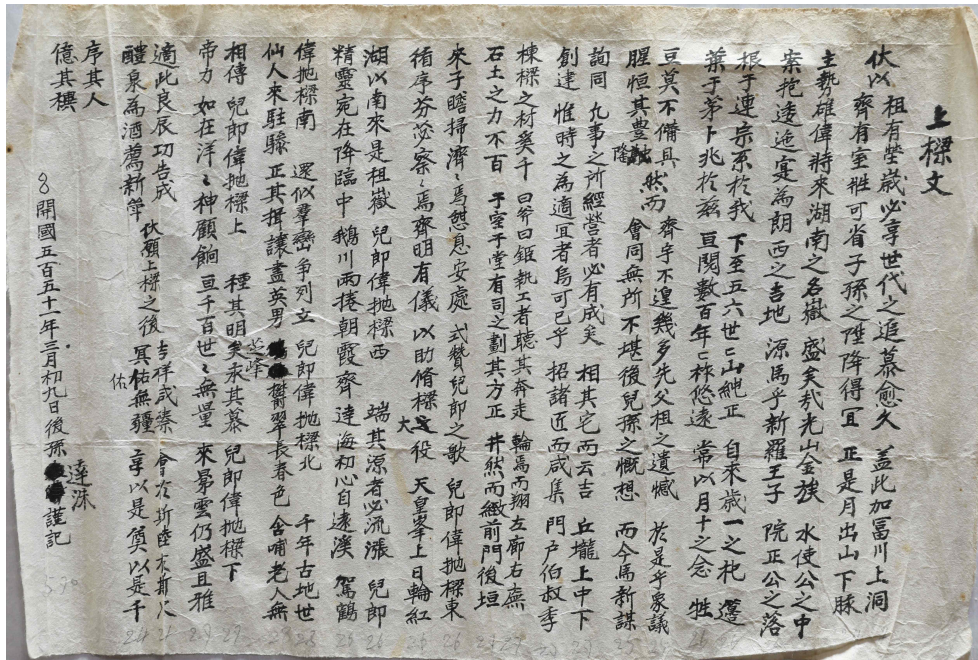 上樑文
伏以 祖有塋歲必享世代之追慕愈久 盖此加冨川上洞
齊有室雖可省子孫之陞降得冝 正是月出山下脉
主勢雄偉特來湖南之名嶽 盛矣㢤光山金族 水使公之中
案抱逶迤寔為朗西之吉地 源焉乎新羅王子 院正公之落
根于連宗系於我 下至五六世亡山紲正 自來歲一之祀 簉
葉于茅卜兆於兹 亘閱數百年亡秝悠遠 常以月十之念 牲
豆莫不備具 齊乎不遑幾多先父祖之遺憾 於是乎衆議
腥恒其豊隆 然而 會同無所不堪後兒孫之慨想 而今焉新謀
詢同 凡事之所經營者必有成矣 相其宅而云吉 丘壠上中下
創建 惟時之為適宜者烏可已乎 招諸匠而咸集 門戶伯叔季
棟樑之材奚千 曰斧曰鉅執工者聽其奔走 輪焉而翔左廊右廡
石土之力不百 于室于堂有司之劃其方正 井然而緻前門後垣
來子瞻掃濟〻焉憩息安處 式贊兒郎之歌 兒郎偉抛樑東
循序芬苾察〻焉齊明有儀 以助脩樑大役 天皇峯上日輪紅
湖以南來是祖嶽 兒郎偉抛樑西 端其源者必流漲 兒郎
精靈宛在降臨中 鵝川兩捲朝霞齊 達海初心自遠溪 駕鶴
偉抛樑南 還似羣巒争列立 兒郎偉抛樑北 千年古地世
仙人來駐驂 正其揖讓盡英男 芝峰欝翠長春色 含哺老人無
相傳 兒郎偉抛樑上 種其明矣永其慕 兒郎偉抛樑下
帝力 如在洋〻神顧餉 亘千百世〻無量 來昴雲仍盛且雅
適此良辰功告成 伏願上樑之後 吉祥咸溱 會於斯陞於斯人
醴泉為酒薦新斝 冥佑無疆 享以是奠以是千
序其人
億其禩
開國五百五十一年三月初九日後孫 達洙 謹記